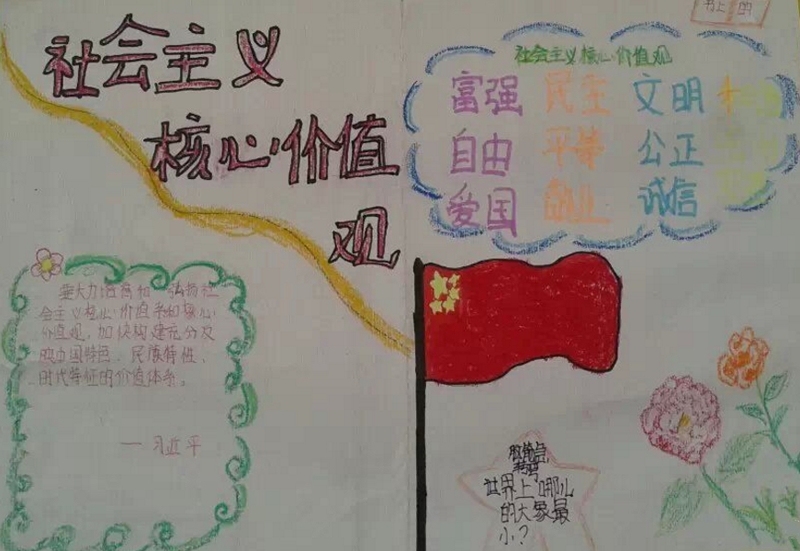 社会主义
核心价值
观
社会主义核心价值观
富强 民主 文明
自由 平等 公正
爱国 敬业 诚信
要大力培育和 弘扬社
会主义核心价值
价值观,加快构建充分反
映中国特色、民族特性、
时代特征的价值体系。
——习近平
世界上哪儿
的大象最
小?